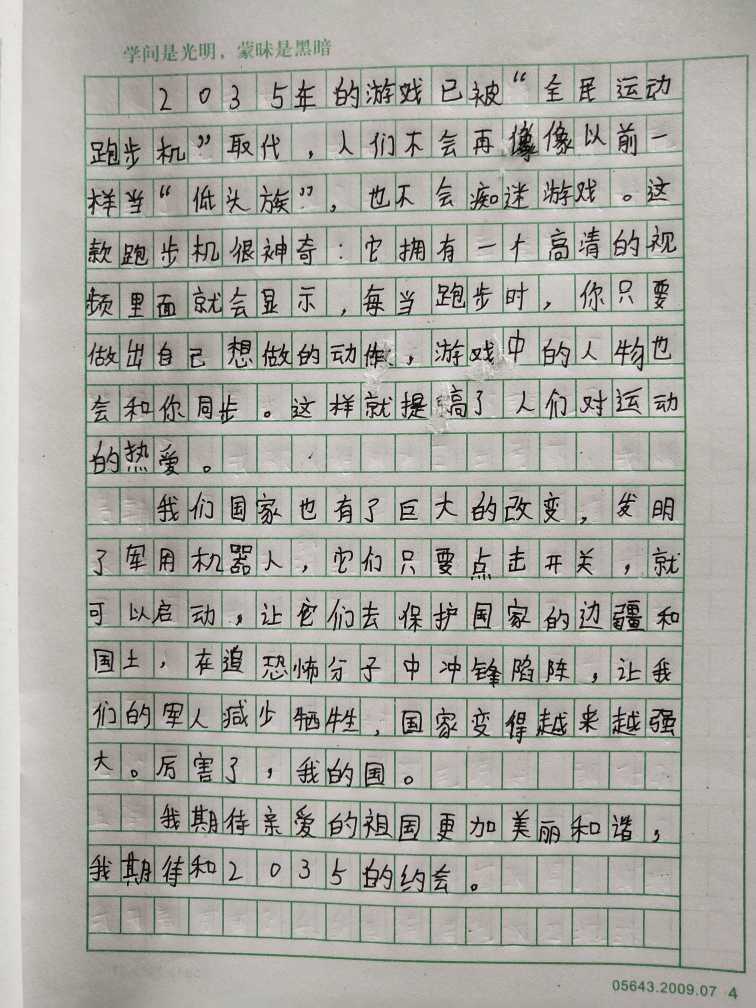 学问是光明，蒙昧是黑暗
2035年的游戏已被“全民运动
跑步机”取代，人们不会再像以前一
样当“低头族”，也不会痴迷游戏。这
款跑步机很神奇：它拥有一个高清的视
频里面就会显示，每当跑步时，你只要
做出自己想做的动作，游戏中的人物也
会和你同步。这样就提高了人们对运动
的热爱。
我们国家也有了巨大的改变，发明
了军用机器人，它们只要点击开关，就
可以启动，让它们去保护国家的边疆和
国土，在追恐怖分子中冲锋陷阵，让我
们的军人减少牺牲，国家变得越来越强
大。厉害了，我的国。
我期待亲爱的祖国更加美丽和谐，
我期待和2035的约会。
05643.2009.07 4